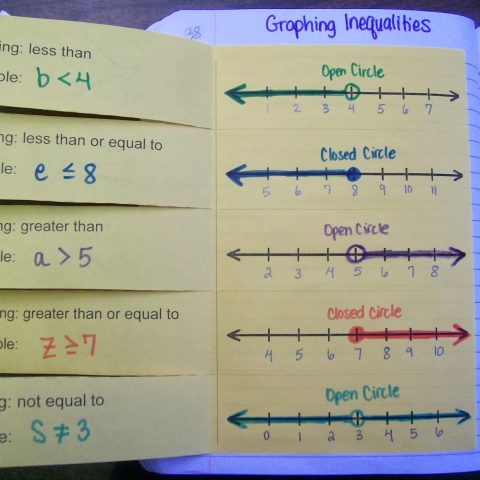 38
Graphing Inequalities
ing: less than
ple: b < 4
Open Circle
1 2 3 4 5 6 7
ng: less than or equal to
le: e ≤ 8
Closed Circle
5 6 7 8 9 10 11
ng: greater than
le: a > 5
Open Circle
2 3 4 5 6 7 8
ng: greater than or equal to
ple: z ≥ 7
Closed Circle
4 5 6 7 8 9 10
g: not equal to
e: S ≠ 3
Open Circle
0 1 2 3 4 5 6